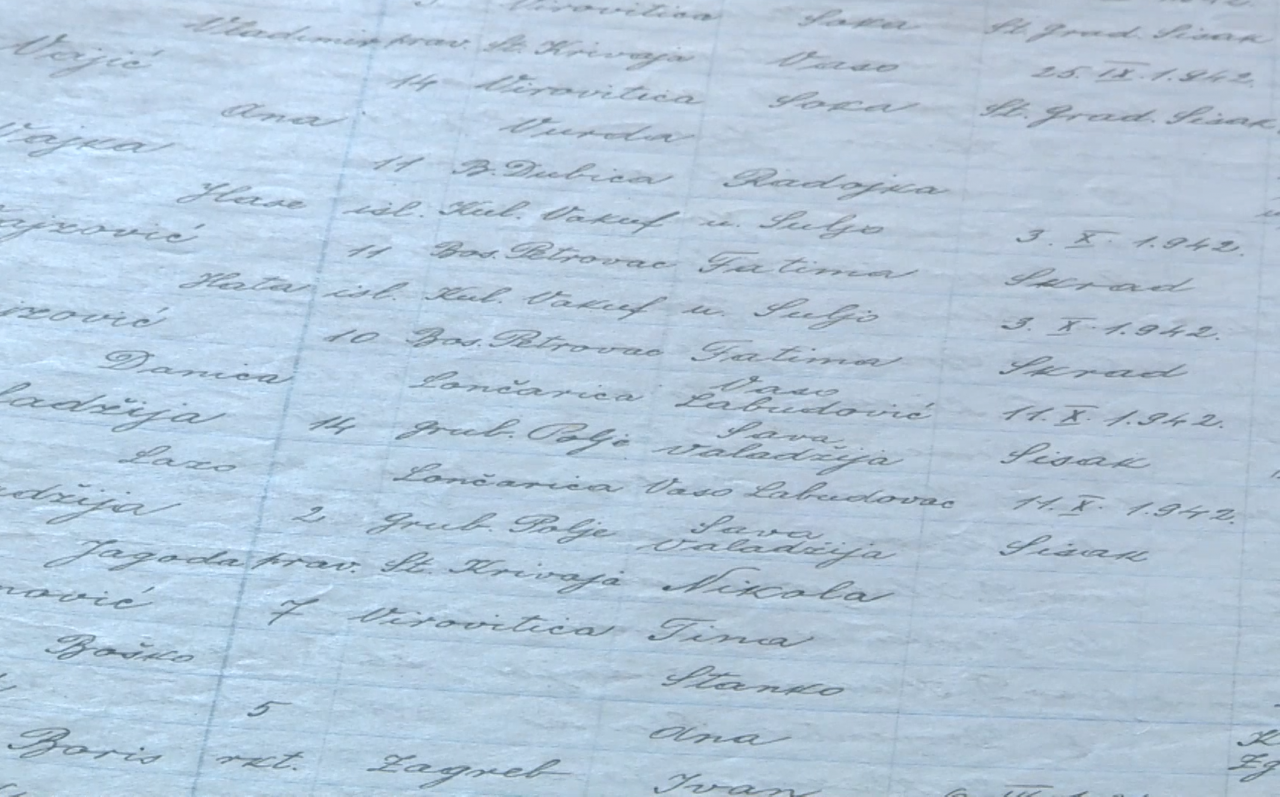 Virovitica Soka St. Grad. Sisak
Vladimir prav. St. Krivaja Vaso 25. IX. 1.942.
Vejić 14 Virovitica Soka St. Grad. Sisak
Ana Vurda
Vajka 11 B. Dubica Radojka
Hase isl. Kul. Vakuf u. Suljo 3. X. 1.942.
11 Bos. Petrovac Fatima Skrad
Hata isl. Kul. Vakuf u. Suljo 3. X. 1.942.
10 Bos. Petrovac Fatima Skrad
Danica Lončarica Vaso
Labudović 11. X. 1.942.
ladžija 14 grub. Polje Sava
Valadžija Sisak
Lazo Lončarica Vaso Labudovac 11. X. 1.942.
adžija 2 Grub. Polje Sava
Valadžija Sisak
Jagoda prav. St. Krivaja Nikola
nović 7 Virovitica Tina
Boško Stanko
5 Ana
Boris rkt. Zagreb Ivan